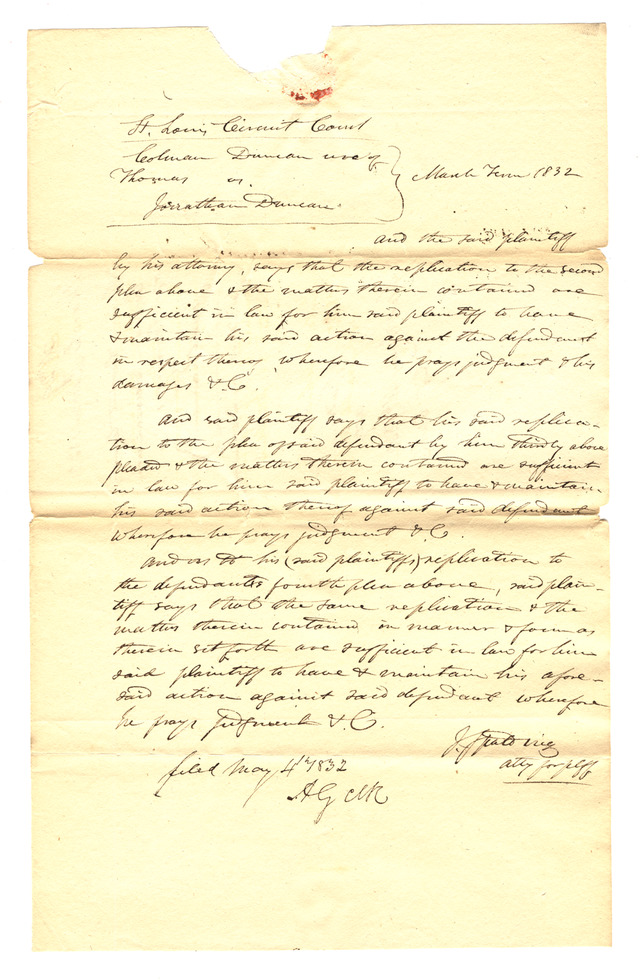 St. Louis Circuit Court
Colman Duncan use of
Thomas vs.
Jonathan Duncan
March Term 1832
and the said plaintiff
by his attorney, says that the replication to the second
plea above & the matters therein contained are
sufficient in law for him said plaintiff to have
& maintain his said action against the defendant
in respect thereof wherefore he prays judgment & his
damages &C.
And said plaintiff says that his said replica-
tion to the plea of said defendant by him thirdly above
pleaded & the matters therein contained are sufficient
in law for him said plaintiff to have & maintain
his said action thereof against said defendant
wherefore he prays judgment &C.
And as to his (said plaintiffs) replication to
the defendants fourth plea above, said plain-
tiff says that the same replication & the
matters therein contained in manner & form as
therein set forth are sufficient in law for him
said plaintiff to have & maintain his afore-
said action against said defendant wherefore
he prays judgment &C.
J. Spalding
atty for plff
filed May 4th 1832
AG clk